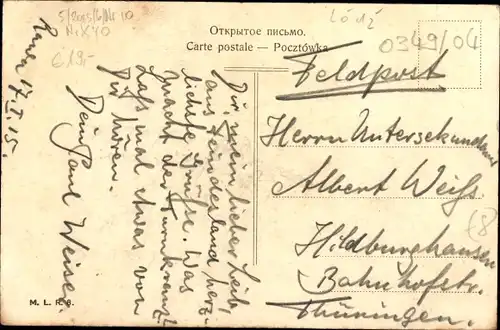 5/2015/6/Nr 10
N. X 40
€ 19,-
Łódź
0349/04
Открытое письмо.
Carte postale — Pocztówka.
Feldpost
Herrn Untersekundaner
Albert Weiß
Hildburghausen
Bahnhofstr.
Thüringen.
17. I. 15.
Dir, mein lieber Leib,
aus Feindesland herz-
lichste Grüße. Was
macht der Turnkranz?
Lass mal etwas von
Dir hören.
Dein Paul Weise.
M. L. R. 6.